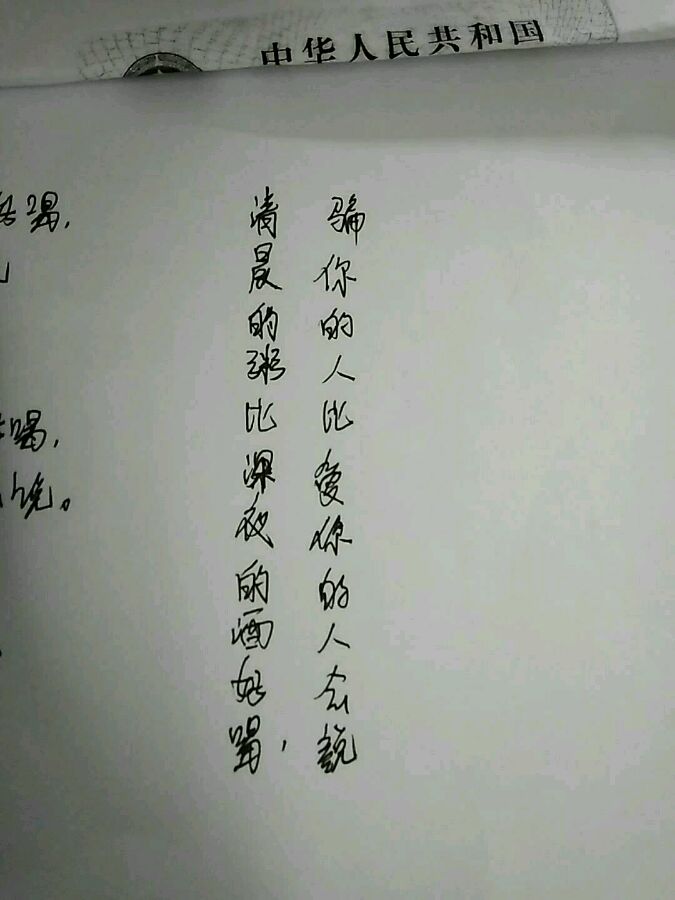 中华人民共和国
清晨的粥比深夜的酒好喝，
骗你的人比爱你的人会说
喝，
喝，
说。